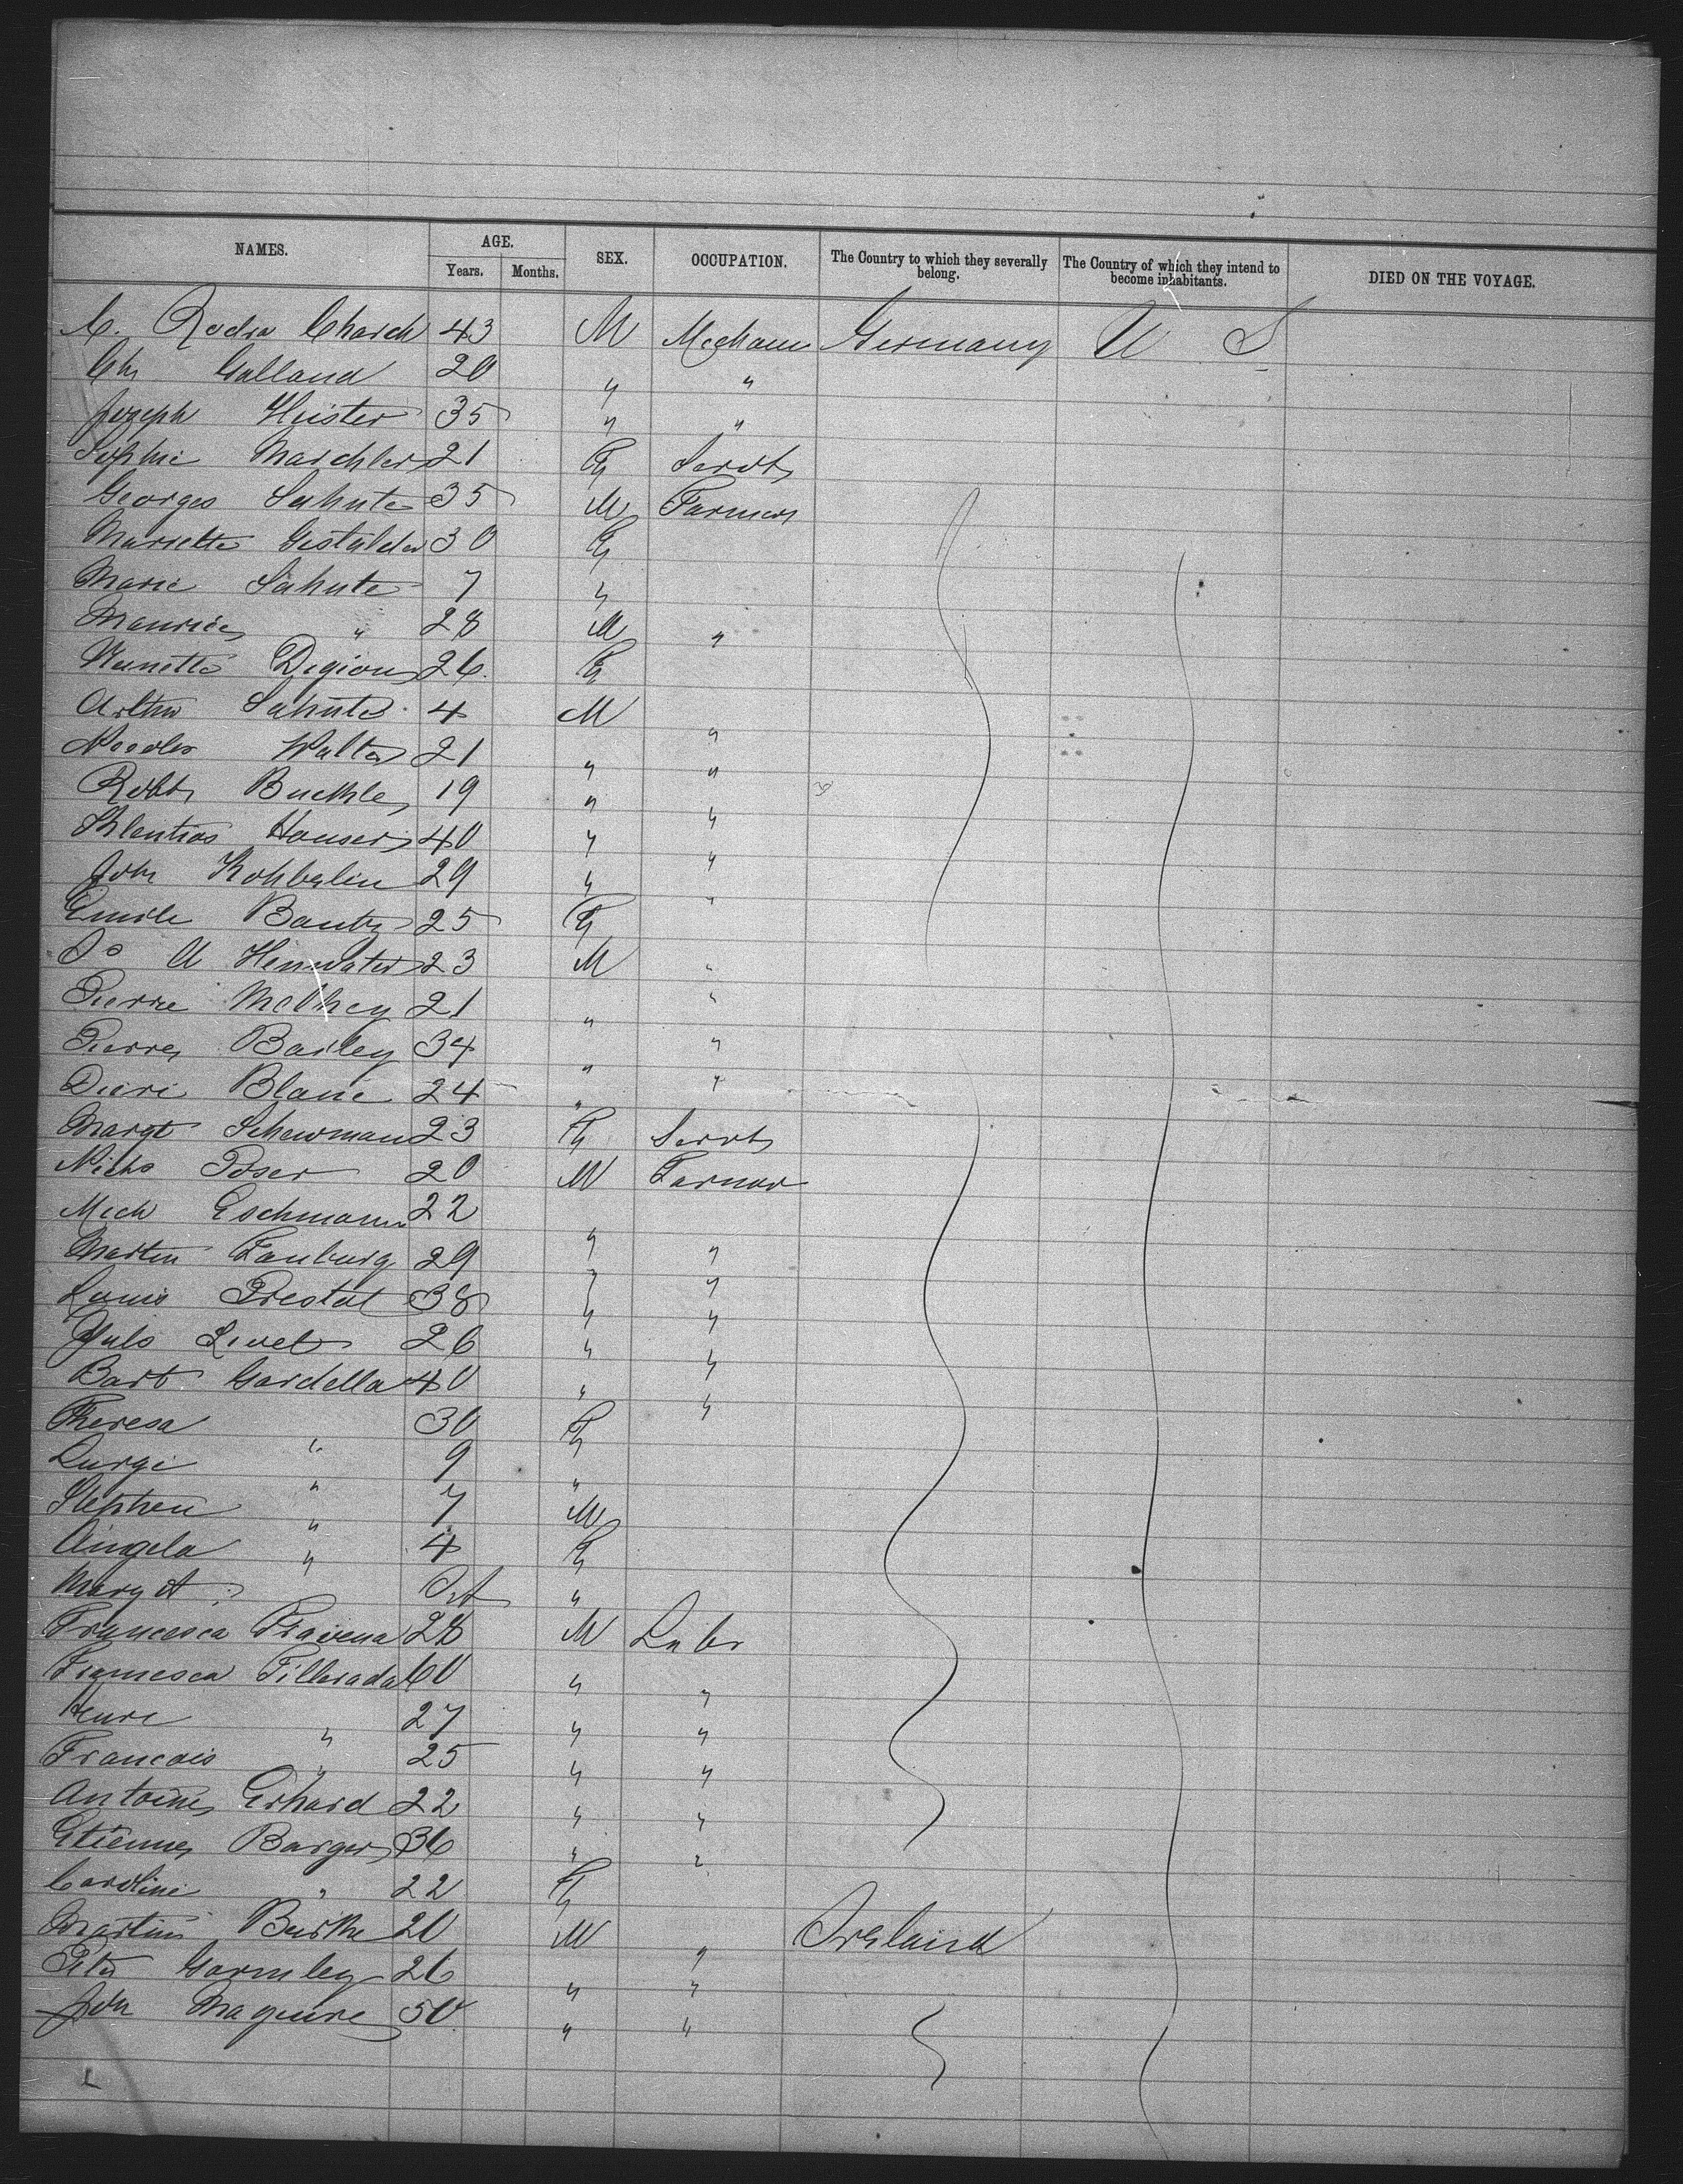 NAMES. AGE. SEX. OCCUPATION. The Country to which they severally belong. The Country of which they intend to become inhabitants. DIED ON THE VOYAGE.
Years. Months.
C. 43 M Germany U S
Galland 20 " "
Joseph Heister 35 " "
Sophie Maechler 21 F Servt
Georges Sahute 35 M Farmer
Marietta 30 F
Marie Sahute 7 "
Maurice " 28 M "
Nanette Digion 26 F
Arthur Sahute 4 M "
Walter 21 " "
Robt Buckle 19 " "
Hauser 40 " "
John 29 " "
Emile Bantz 25 F
A 23 M "
Pierre 21 " "
Pierre Barley 34 " "
Blanc 24 "
Margt Schewman 23 F Servt
Nichs Poser 20 M Farmer
Mich Eschmann 22 " "
Martin Fauburg 29 " "
Louis Prestat 38 " "
Juls Livet 26 " "
Bart Gardella 40 " "
Theresa " 30 F
Luigi " 9 "
Stephen " 7 M
Angela " 4 F
Mary A " "
Francesca 28 M Labr
Francesca 60 " "
Henri " 27 " "
Francois " 25 " "
Antoine Erhard 22 " "
Etienne Barger 36 " "
Caroline " 22 F
Martin Burke 20 M " Ireland
Peter Gormley 26 " "
John Maguire 50 " "